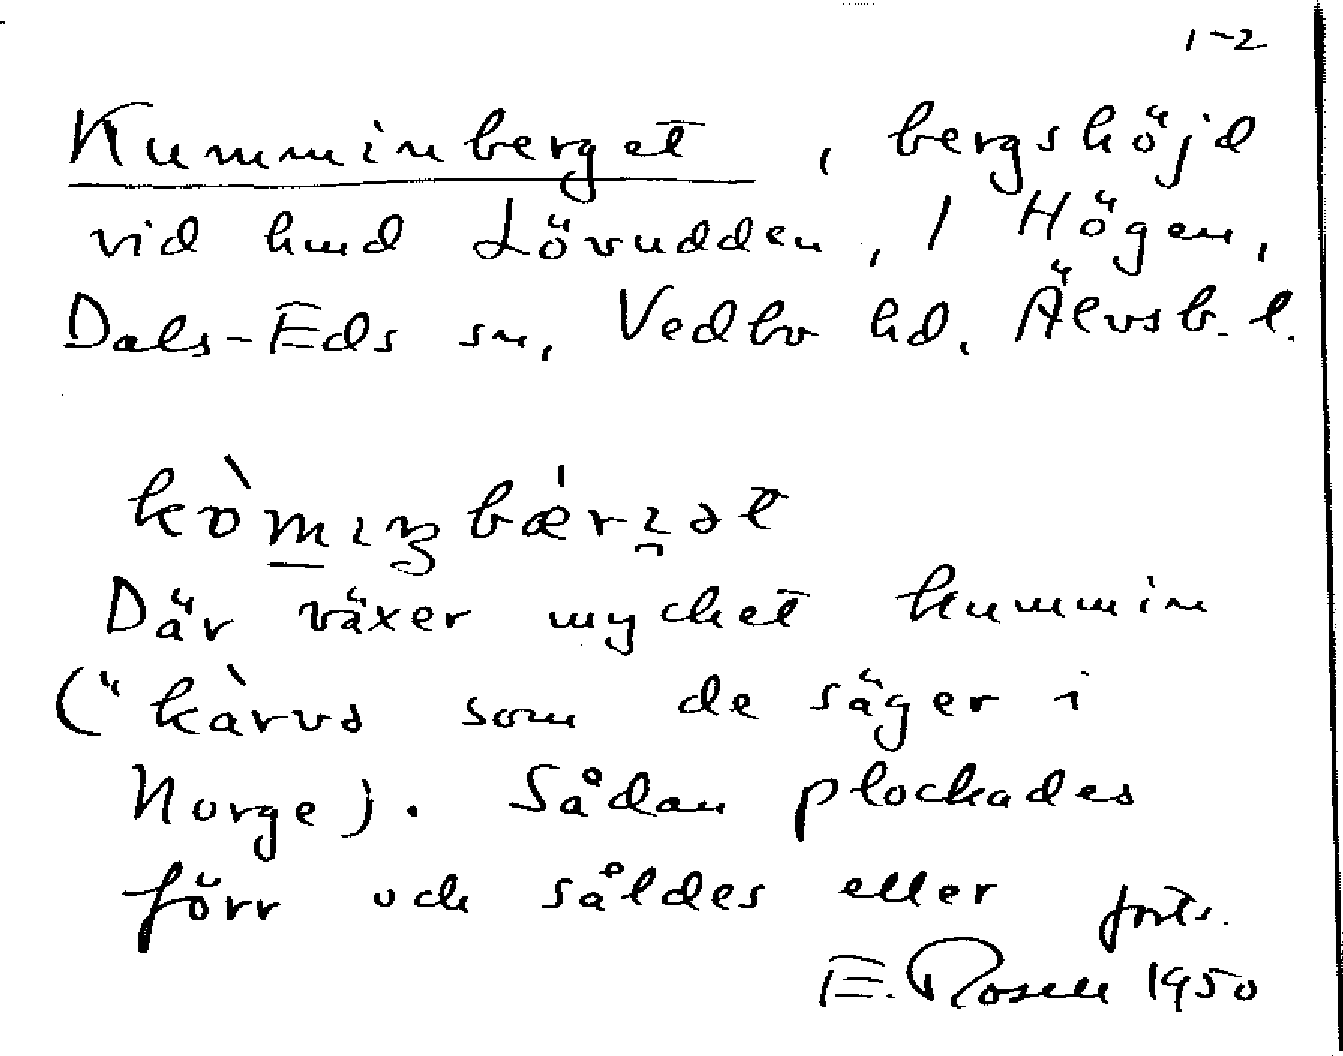 1-2
Kumminberget, bergshöjd
vid hmd Lövudden, 1 Högen,
Dals-Eds sn, Vedbo hd. Älvsb. l.
Där växer mycket kummin
("kàrvə som de säger i
Norge). Sådan plockades
förr och såldes eller forts.
E. Rosell 1950